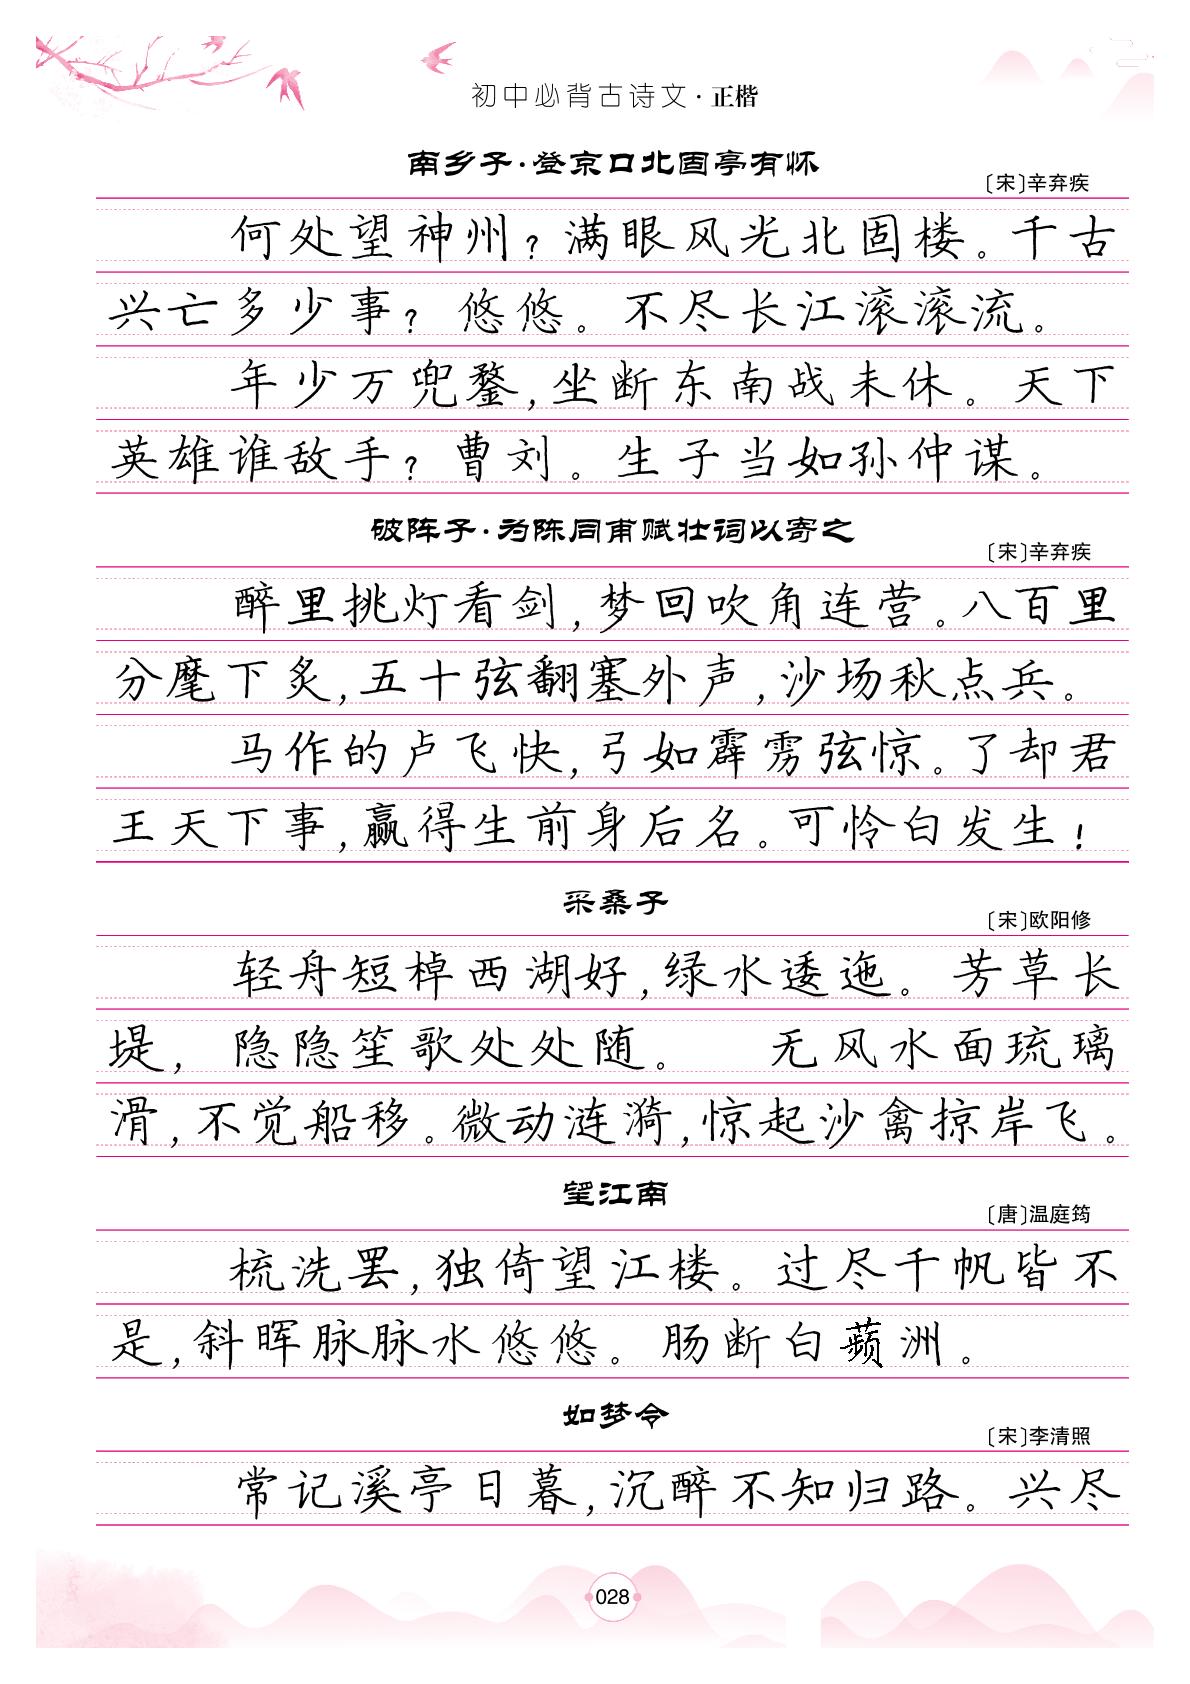 初中必背古诗文·正楷
南乡子·登京口北固亭有怀
〔宋〕辛弃疾
何处望神州？满眼风光北固楼。千古
兴亡多少事？悠悠。不尽长江滚滚流。
年少万兜鍪，坐断东南战未休。天下
英雄谁敌手？曹刘。生子当如孙仲谋。
破阵子·为陈同甫赋壮词以寄之
〔宋〕辛弃疾
醉里挑灯看剑，梦回吹角连营。八百里
分麾下炙，五十弦翻塞外声，沙场秋点兵。
马作的卢飞快，弓如霹雳弦惊。了却君
王天下事，赢得生前身后名。可怜白发生！
采桑子
〔宋〕欧阳修
轻舟短棹西湖好，绿水逶迤。芳草长
堤，隐隐笙歌处处随。 无风水面琉璃
滑，不觉船移。微动涟漪，惊起沙禽掠岸飞。
望江南
〔唐〕温庭筠
梳洗罢，独倚望江楼。过尽千帆皆不
是，斜晖脉脉水悠悠。肠断白蘋洲。
如梦令
〔宋〕李清照
常记溪亭日暮，沉醉不知归路。兴尽
028